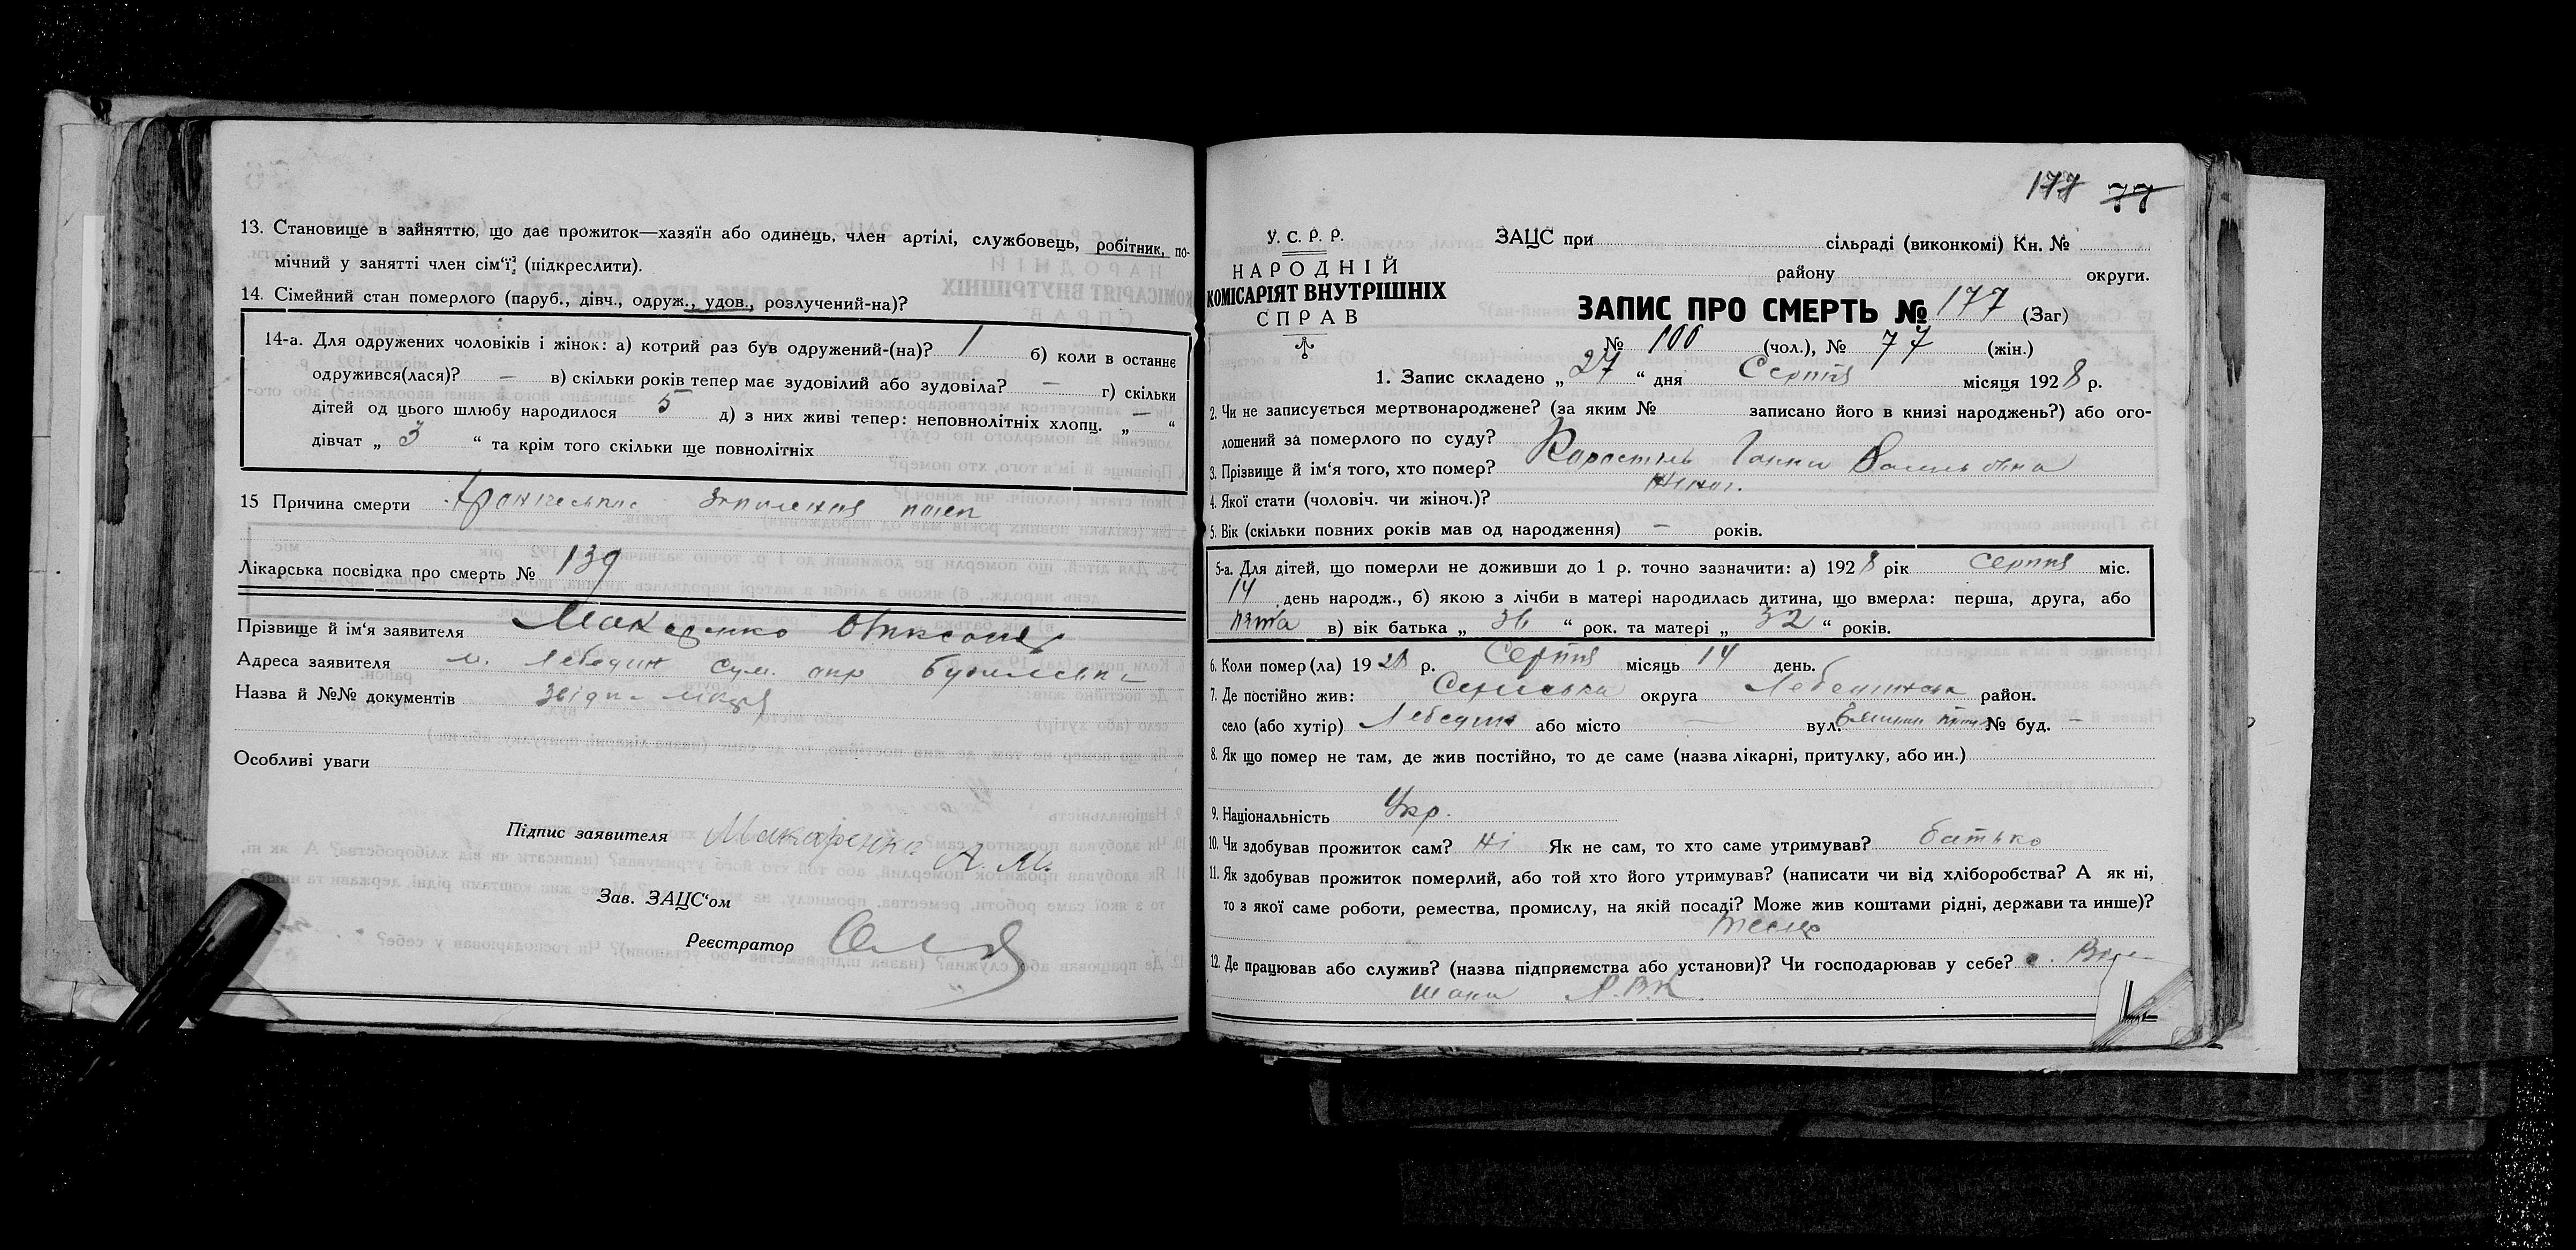 13. Становище в зайняттю, що дає прожиток—хазяїн або одинець, член артілі, службовець, робітник, по-
мічний у занятті член сім'ї; (підкреслити).
14. Сімейний стан померлого (паруб., дівч., одруж., удов., розлучений-на)?
14-а. Для одружених чоловіків і жінок: а) котрий раз був одружений-(на)? 1 б) коли в останнє
одружився(лася)? — в) скільки років тепер має зудовілий або зудовіла? — г) скільки
дітей од цього шлюбу народилося 5 д) з них живі тепер: неповнолітніх хлопц. „ — “
дівчат „ 3 “ та крім того скільки ще повнолітніх
15 Причина смерти запалення
Лікарська посвідка про смерть № 139
Прізвище й ім'я заявителя Макаренко
Адреса заявителя м. Лебедин Сум. окр
Назва й №№ документів
Особливі уваги
Підпис заявителя Макаренко А. М.
Зав. ЗАЦС'ом
Реєстратор
177 77
У. С. Р. Р.
НАРОДНІЙ
КОМІСАРІЯТ ВНУТРІШНІХ
СПРАВ
ЗАЦС при сільраді (виконкомі) Кн. №
району округи.
ЗАПИС ПРО СМЕРТЬ № 177 (Заг)
№ 100 (чол.), № 77 (жін.)
1. Запис складено „ 27 “ дня Серпня місяця 1928 р.
2. Чи не записується мертвонароджене? (за яким № записано його в книзі народжень?) або ого-
лошений за померлого по суду?
3. Прізвище й ім'я того, хто помер? Ганна Васильовна
4. Якої стати (чоловіч. чи жіноч.)? жіноч.
5. Вік (скільки повних років мав од народження) — років.
5-а. Для дітей, що померли не доживши до 1 р. точно зазначити: а) 1928 рік серпня міс.
14 день народж., б) якою з лічби в матері народилась дитина, що вмерла: перша, друга, або
пята в) вік батька „ 36 “ рок. та матері „ 32 “ років.
6. Коли помер(ла) 1928 р. Серпня місяць 14 день.
7. Де постійно жив: Сумська округа Лебединськ район.
село (або хутір) Лебедин або місто — вул. № буд. —
8. Як що помер не там, де жив постійно, то де саме (назва лікарні, притулку, або ин.)
9. Національність Укр.
10. Чи здобував прожиток сам? Ні Як не сам, то хто саме утримував? батько
11. Як здобував прожиток померлий, або той хто його утримував? (написати чи від хліборобства? А як ні,
то з якої саме роботи, ремества, промислу, на якій посаді? Може жив коштами рідні, держави та инше)?
12. Де працював або служив? (назва підприємства або установи)? Чи господарював у себе?